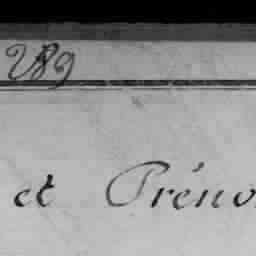 289
et Préno